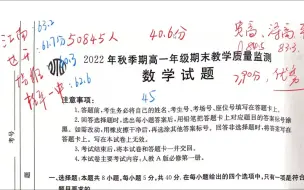 江南: 63.2
50845人
40.6分
2022 年秋季期高一年级期末教学质量监测
数学试题
45
注意事项：
1. 答题前，考生务必将自己的姓名、考生号、考场号、座位号填写在答题卡上。
2. 回答选择题时，选出每小题答案后，用铅笔把答题卡上对应题目的答案标号涂黑。如需改动，用橡皮擦干净后，再选涂其他答案标号。回答非选择题时，将答案写在答题卡上。写在本试卷上无效。
3. 考试结束后，将本试卷和答题卡一并交回。
4. 本卷主要考查内容：人教 A 版必修第一册。
一、选择题：本题共 8 小题，每小题 5 分，共 40 分。在每小题给出的四个选项中，只有一项是符合
题目要求的。
考号